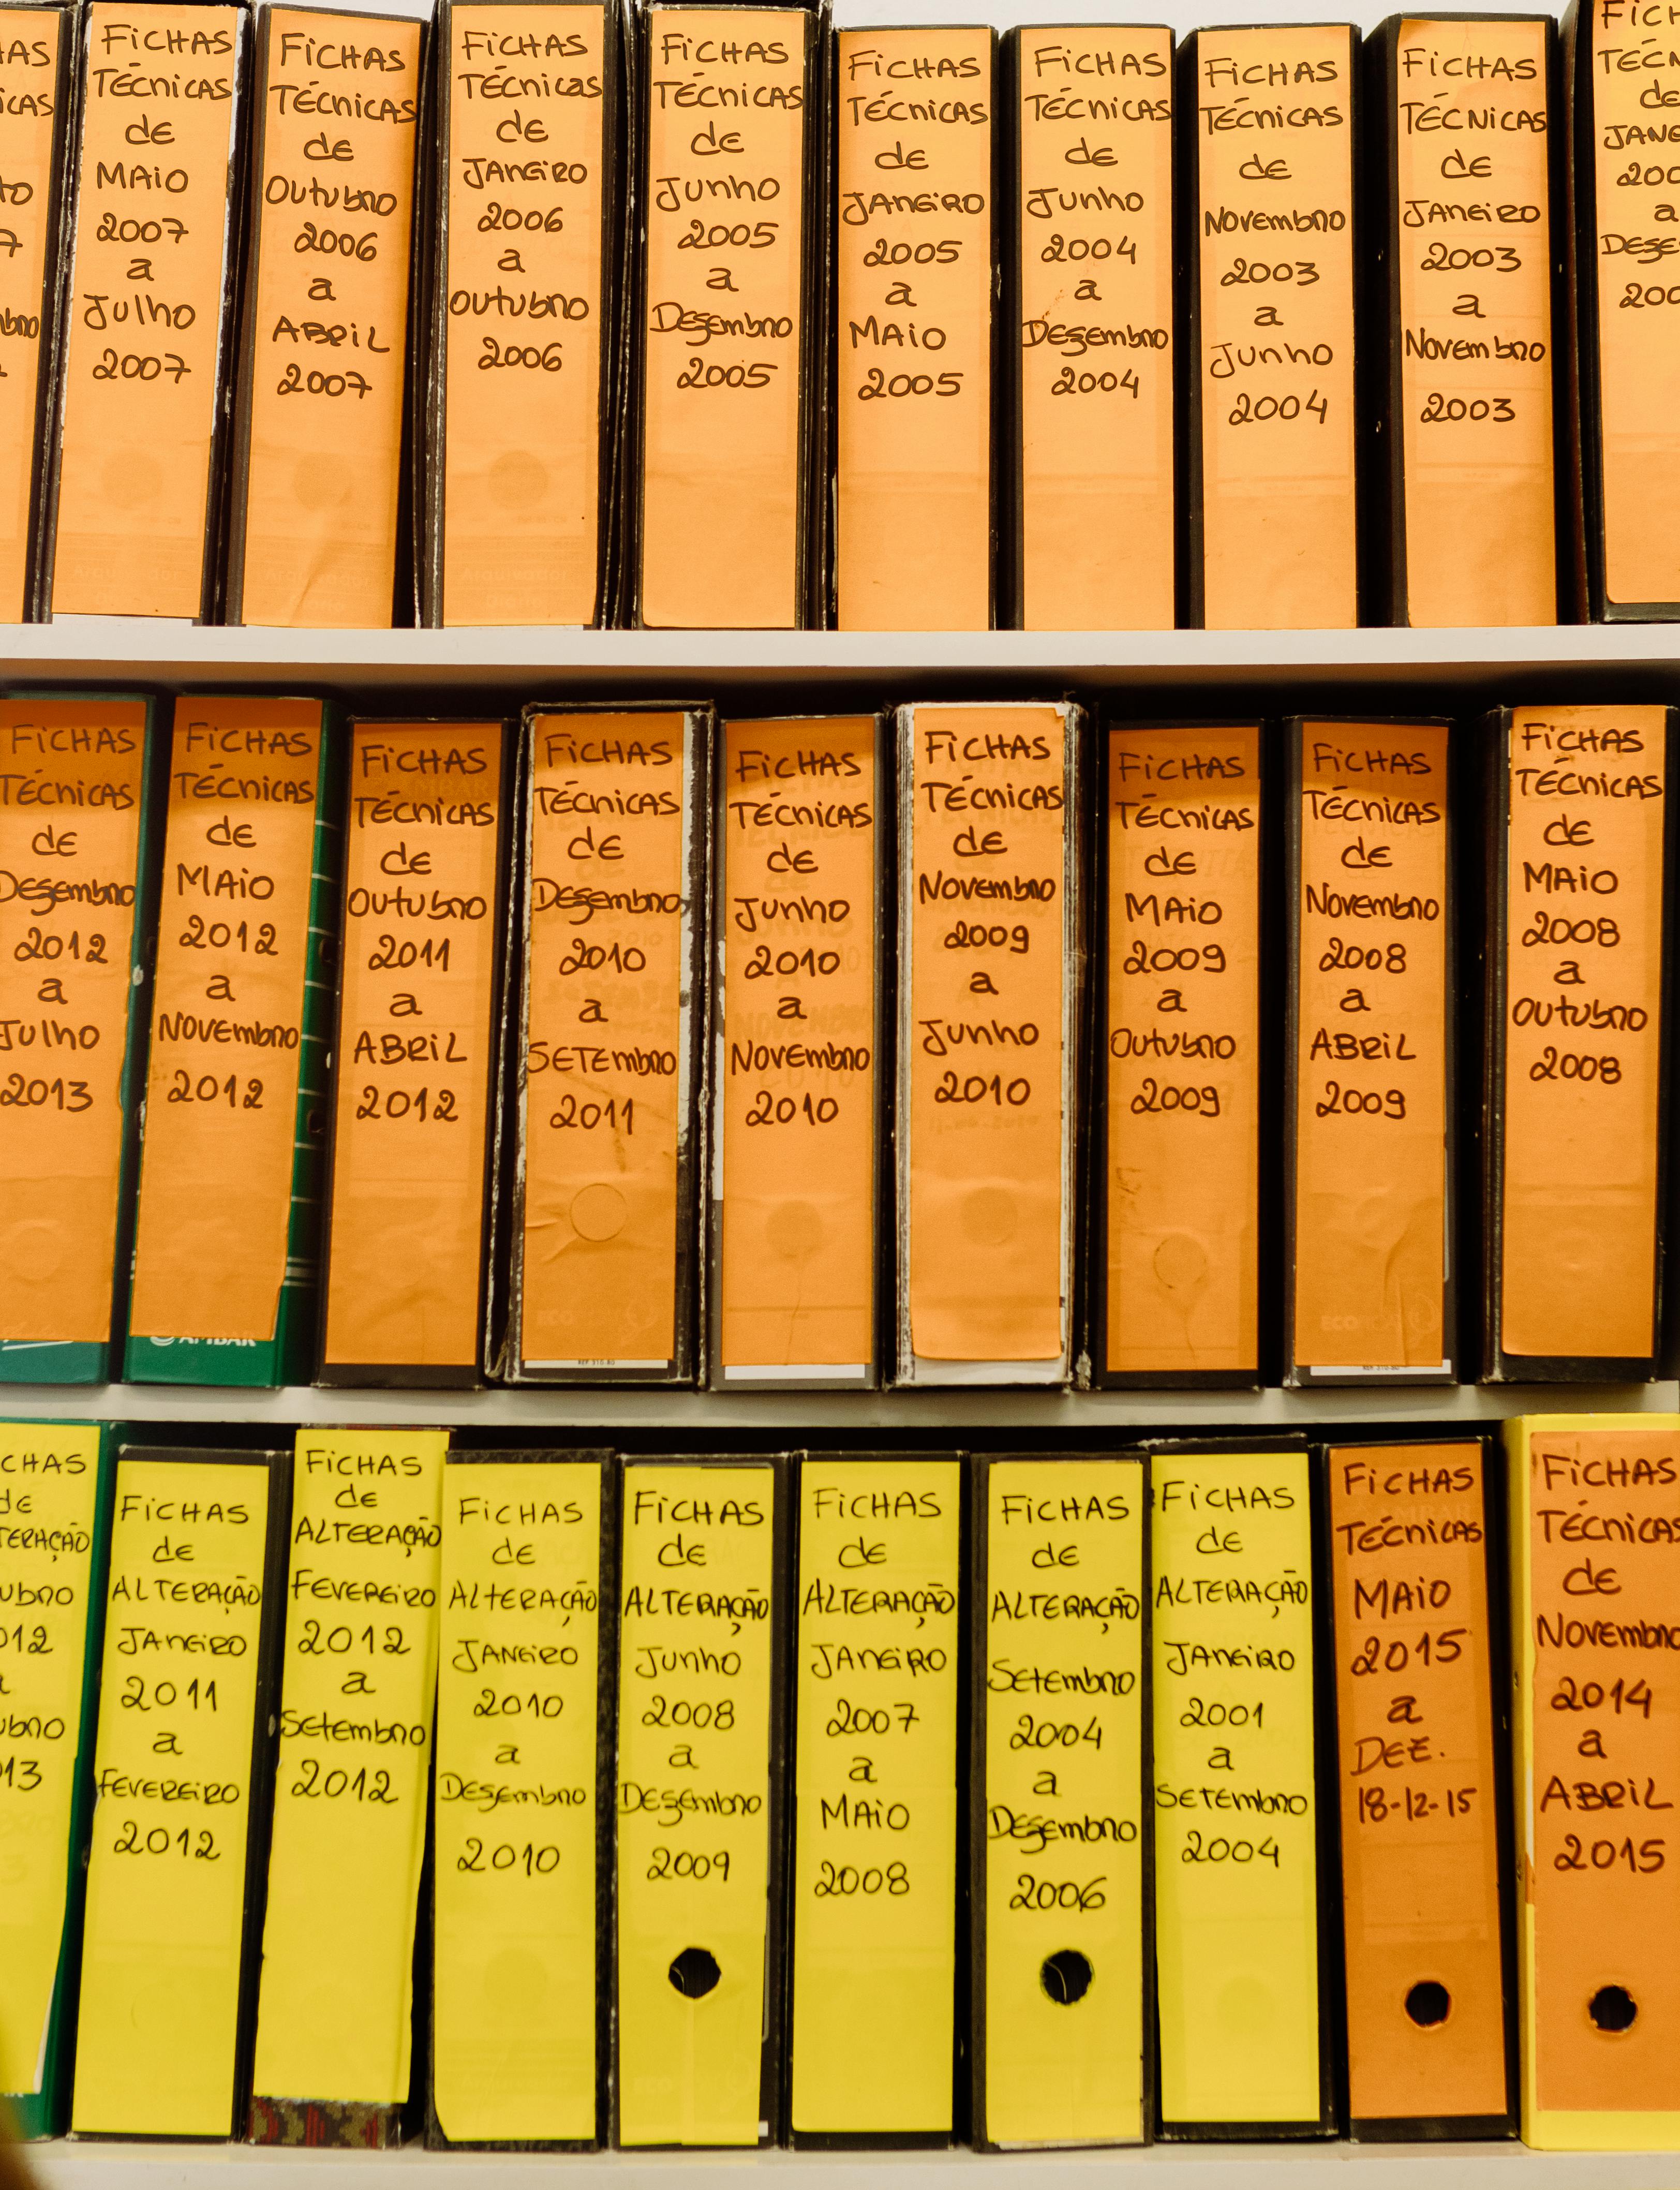 FiCHAS
TÉCNiCAS
de
MAiO
2007
a
Julho
2007
FiCHAS
TÉCNiCAS
de
Outubro
2006
a
ABRiL
2007
FiCHAS
TÉCNiCas
de
JANEiRO
2006
a
Outubro
2006
FiCHAS
TÉCNiCAS
de
Junho
2005
a
Dezembro
2005
FiCHAS
TÉCNiCAS
de
JANEiRO
2005
a
MAiO
2005
FiCHAS
TÉCNiCAS
de
Junho
2004
a
Dezembro
2004
FiCHAS
TÉCNiCAS
de
Novembro
2003
a
Junho
2004
FiCHAS
TÉCNiCAS
de
JANEiRO
2003
a
Novembro
2003
FiCHAS
TÉCNiCAS
de
Dezembro
2012
a
Julho
2013
FiCHAS
TÉCNiCAS
de
MAiO
2012
a
Novembro
2012
AMBAR
FiCHAS
TÉCNiCAS
de
Outubro
2011
a
ABRiL
2012
FiCHAS
TÉCNiCAS
de
Dezembro
2010
a
SETEmbro
2011
FiCHAS
TÉCNiCAS
de
Junho
2010
a
Novembro
2010
FiCHAS
TÉCNiCAS
de
Novembro
2009
a
Junho
2010
FiCHAS
TÉCNiCAS
de
MAiO
2009
a
Outubro
2009
FiCHAS
TÉCNiCAS
de
Novembro
2008
a
ABRiL
2009
FiCHAS
TÉCNiCAS
de
MAiO
2008
a
Outubro
2008
FiCHAS
de
ALTERAÇÃO
JANEiRO
2011
a
FEVEREiRO
2012
FiCHAS
de
ALTERAÇÃO
FEVEREiRO
2012
a
Setembro
2012
FiCHAS
de
ALTERAÇÃO
JANEiRO
2010
a
Dezembro
2010
FiCHAS
de
ALTERAÇÃO
Junho
2008
a
Dezembro
2009
FiCHAS
de
ALTERAÇÃO
JANEiRO
2007
a
MAiO
2008
FiCHAS
de
ALTERAÇÃO
Setembro
2004
a
Dezembro
2006
FiCHAS
de
ALTERAÇÃO
JANEiRO
2001
a
SETEmbro
2004
FiCHAS
TÉCNiCAS
MAiO
2015
a
DEZ.
18-12-15
FiCHAS
TÉCNiCAS
de
Novembro
2014
a
ABRiL
2015